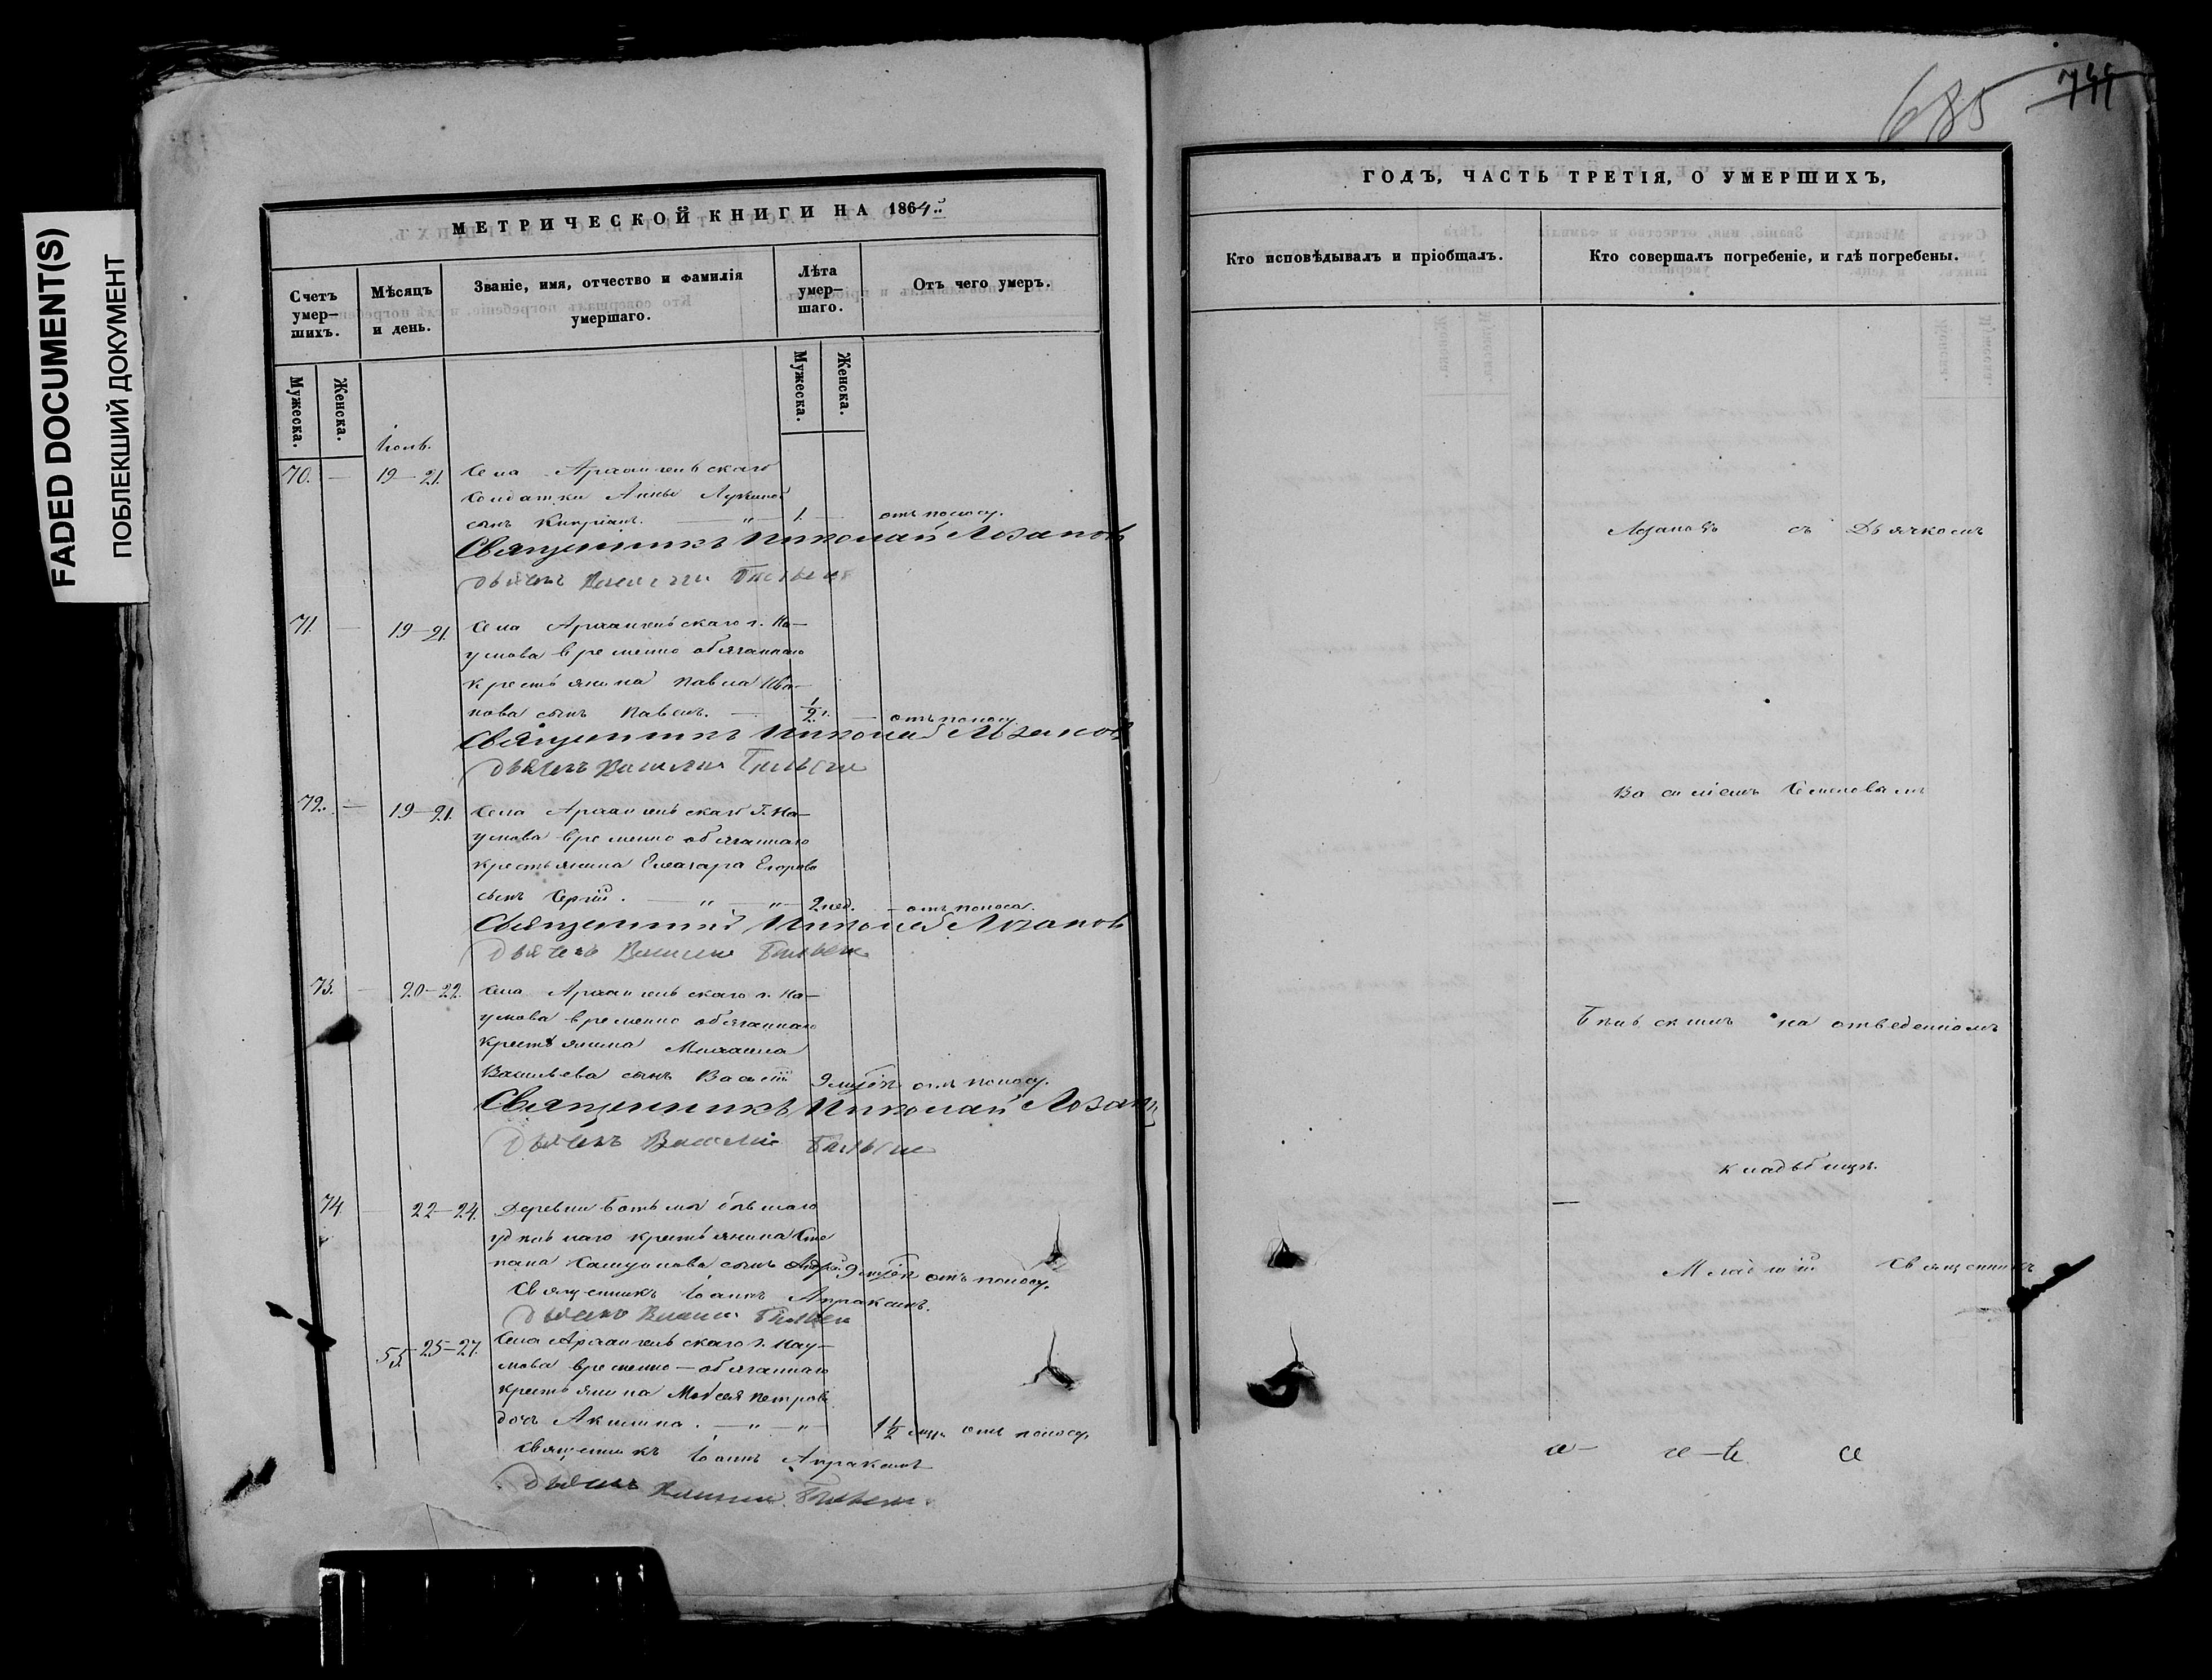 FADED DOCUMENT(S)
ПОБЛЕКШИЙ ДОКУМЕНТ
МЕТРИЧЕСКОЙ КНИГИ НА 1864
Счетъ умер-шихъ.
Мѣсяцъ и день.
Званіе, имя, отчество и фамилія умершаго.
Лѣта умер-шаго.
Отъ чего умеръ.
Мужеска.
Женска.
Мужеска.
Женска.
70. — 19—21. Села Архангельскаго
солдатки Анны Лукиной
сынъ Кипріанъ. — „ — 1. — отъ поносу.
Священникъ Николай Лозановъ
дьячекъ Василій
71. — 19—21. Села Архангельскаго г. На-
умова временно обязаннаго
крестьянина Павла Ива-
нова сынъ Павелъ. — 1/2 г. — отъ поносу.
Священникъ Николай Лозановъ
дьячекъ Василій
72. — 19—21. Села Архангельскаго Г. На-
умова временно обязаннаго
крестьянина Елеазара Егорова
сынъ Сергій. — „ — „ — 2 нед. — отъ поноса.
Священникъ Николай Лозановъ
дьячекъ Василій
73. — 20—22. Села Архангельскаго г. На-
умова временно обязаннаго
крестьянина Михаила
Васильева сынъ Василій отъ поносу.
Священникъ Николай Лозановъ
дьячекъ Василій
74. — 22—24. Деревни бывшаго
удѣльнаго крестьянина Сте
пана сынъ Андрей 9 отъ поносу.
Священникъ Іоаннъ Апраксинъ.
дьячекъ Василій
55. 25—27. Села Архангельскаго г. Нау-
мова временно-обязаннаго
крестьянина Моисея Петрова
дочь Акилина. — „ — „ — 1 1/2 отъ поносу.
Священникъ Іоаннъ Апраксинъ
дьячекъ Василій
685 744
ГОДЪ, ЧАСТЬ ТРЕТІЯ, О УМЕРШИХЪ,
Кто исповѣдывалъ и пріобщалъ.
Кто совершалъ погребеніе, и гдѣ погребены.
Лозановъ съ Дьячкомъ
Василіемъ Семеновымъ
на отведенномъ
кладбищѣ.
Младшій Священникъ